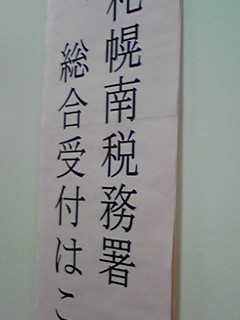 札幌南税務署
総合受付はこ